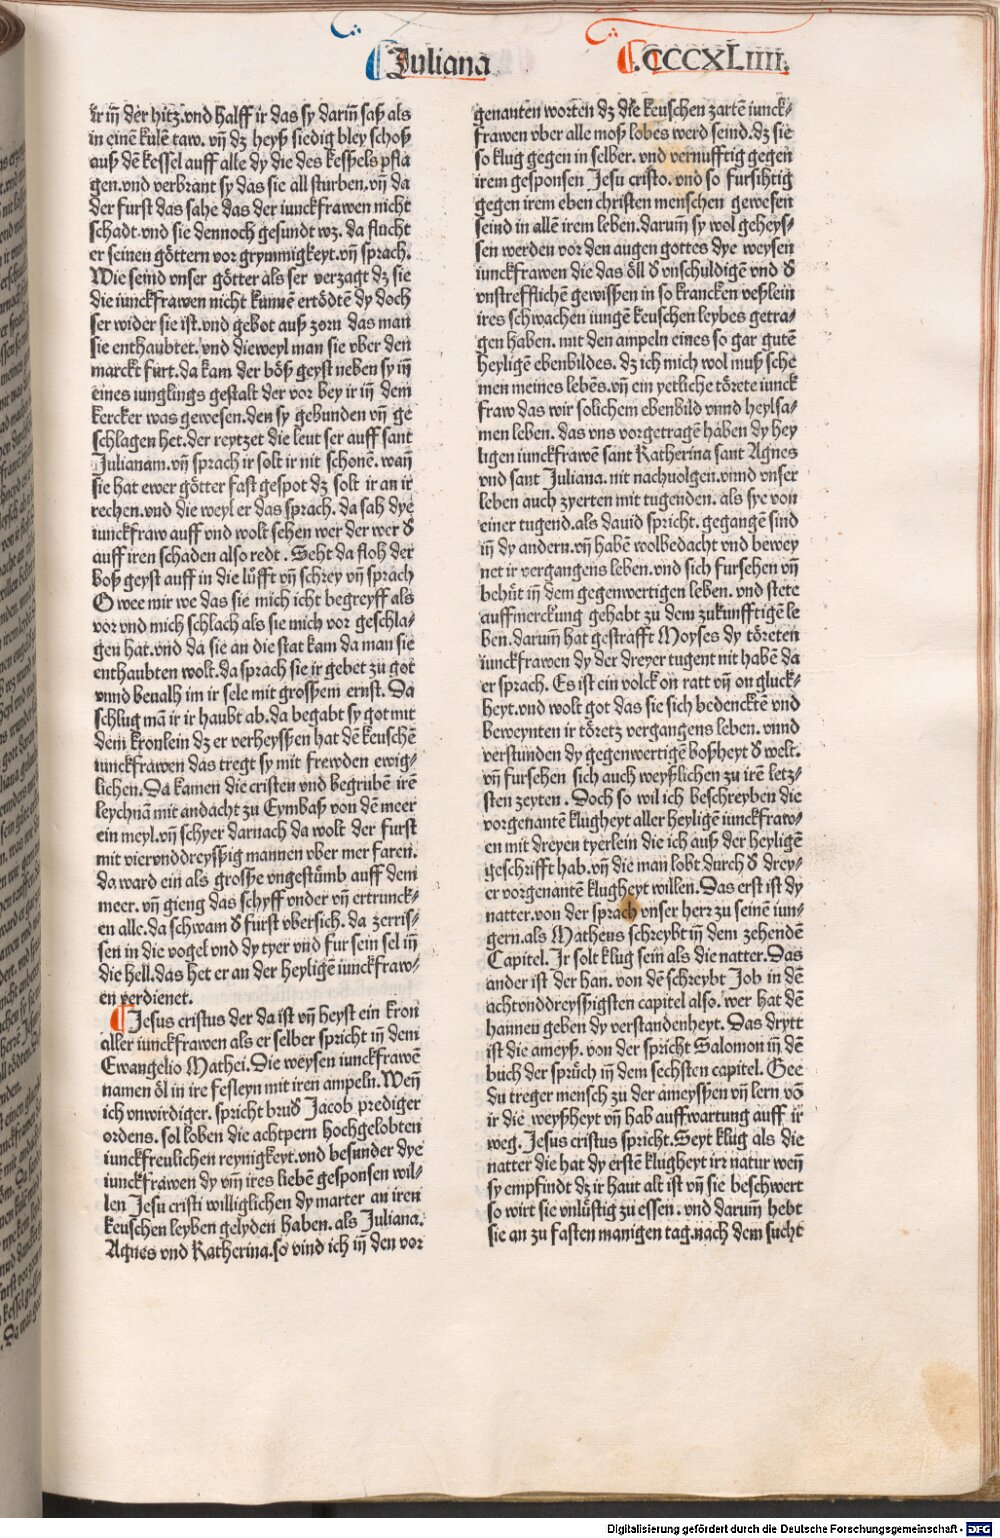 Juliana
.CCCXLIIII.
ir iñ der hitz.vnd halff ir das sy dariñ saß als
in einē kulē taw. vñ dz heyß siedig bley schoß
auß dē kessel auff alle dy die des keſſels pfla
gen.vnd verbrant sy das sie all sturben.vñ da
der furst das sahe das der iunckfrawen nicht
schadt.vnd sie dennoch gesundt wz. da flucht
er seinen göttern vor grymmigkeyt.vñ sprach.
Wie seind vnser götter als ser verzagt dz sie
die iunckfrawen nicht kunnē ertödtē dy doch
ser wider sie ist.vnd gebot auß zorn das man
sie enthaubtet. vnd dieweyl man sie vber den
marckt furt.da kam der böß geyst neben sy iñ
eines iunglings gestalt der vor bey ir iñ dem
kercker was gewesen.den sy gebunden vñ ge
schlagen het.der reytzet die leut ser auff sant
Julianam.vñ sprach ir solt ir nit schonē. wañ
sie hat ewer götter fast gespot dz solt ir an ir
rechen.vnd die weyl er das sprach. da sah dye
iunckfraw auff vnd wolt sehen wer der wer d̓
auff iren schaden also redt. Seht da floh der
boß geyst auff in die lüfft vñ schrey vñ sprach
O wee mir we das sie mich icht begreyff als
vor vnd mich schlach als sie mich vor geschla⸗
gen hat.vnd da sie an die stat kam da man sie
enthaubten wolt.da sprach sie ir gebet zu got
vnnd beualh im ir sele mit grossem ernst. Da
schlug mā ir ir haubt ab.da begabt sy got mit
dem kronlein dz er verheyssen hat dē keuschē
iunckfrawen das tregt sy mit frewden ewig⸗
lichen.Da kamen die cristen vnd begrubē irē
leychnā mit andacht zu Cymbaß von dē meer
ein meyl.vñ schyer darnach da wolt der furst
mit viervnddreyssig mannen vber mer faren.
da ward ein als grosse vngestümb auff dem
meer. vñ gieng das schyff vnder vñ ertrunck⸗
en alle.da schwam d̓ furst vbersich. da zerris⸗
sen in die vogel vnd dy tyer vnd fur sein sel iñ
die hell.das het er an der heyligē iunckfraw⸗
en verdienet.
Jesus cristus der da ist vñ heyst ein kron
aller iunckfrawen als er selber spricht iñ dem
Ewangelio Mathei.Die weysen iunckfrawē
namen öl in ire fesleyn mit iren ampeln.Weñ
ich vnwirdiger. spricht brud̓ Jacob prediger
ordens. sol loben die achtpern hochgelobten
iunckfreulichen reynigkeyt.vnd besunder dye
iunckfrawen dy vm̄ ires liebē gesponsen wil⸗
len Jesu cristi williglichen dy marter an iren
keuschen leyben gelyden haben. als Juliana.
Agnes vnd Katherina.so vind ich iñ den vor
genanten worten dz die keuschen zartē iunck⸗
frawen vber alle moß lobes werd seind.dz sie
so klug gegen in selber. vnd vernufftig gegen
irem gesponsen Jesu cristo. vnd so fursihtig
gegen irem eben christen menschen gewesen
seind in allē irem leben.darum̄ sy wol geheys⸗
sen werden vor den augen gottes dye weysen
iunckfrawen die das öll d̓ vnschuldigē vnd d̓
vnstrefflichē gewissen in so krancken veßlein
ires schwachen iungē keuschen leybes getra⸗
gen haben. mit den ampeln eines so gar gutē
heyligē ebenbildes. dz ich mich wol muß sche
men meines lebēs.vñ ein yetliche törete iunck
fraw das wir solichem ebenbild vnnd heylsa⸗
men leben. das vns vorgetragē haben dy hey
ligen iunckfrawē sant Katherina sant Agnes
vnd sant Juliana. nit nachuolgen.vnnd vnser
leben auch zyerten mit tugenden. als sye von
einer tugend.als dauid spricht. gegangē sind
iñ dy andern.vñ habē wolbedacht vnd bewey
net ir vergangens leben.vnd sich fursehen vñ
behüt iñ dem gegenwertigen leben. vnd stete
auffmerckung gehabt zu dem zukunfftigē le
ben.darum̄ hat gestrafft Moyses dy töreten
iunckfrawen dy der dreyer tugent nit habē da
er sprach. Es ist ein volck on ratt vñ on gluck⸗
heyt.vnd wolt got das sie sich bedencktē vnd
beweynten ir töretz vergangens leben. vnnd
verstunden dy gegenwertigē boßheyt d̓ welt.
vñ fursehen sich auch weyßlichen zu irē letz⸗
sten zeyten. Doch so wil ich beschreyben die
vorgenantē klugheyt aller heyligē iunckfraw⸗
en mit dreyen tyerlein die ich auß der heyligē
geschrifft hab.vñ die man lobt durch d̓ drey⸗
er vorgenantē klugheyt willen.Das erst ist dy
natter.von der sprach vnser herr zu seinē iun⸗
gern.als Matheus schreybt iñ dem zehenden
Capitel. Ir solt klug sein als die natter.Das
ander ist der han. von dē schreybt Job in dē
achtvnddreyssigsten capitel also. wer hat dē
hannen geben dy verstandenheyt. Das drytt
ist die ameyß. von der spricht Salomon iñ dē
buch der sprüch iñ dem sechsten capitel. Gee
du treger mensch zu der ameyssen vñ lern vō
ir die weyßheyt vñ hab auffwartung auff ir
weg. Jesus cristus spricht.Seyt klug als die
natter die hat dy erstē klugheyt irr natur weñ
sy empfindt dz ir haut alt ist vñ sie beschwert
so wirt sie vnlüstig zu essen. vnd darum̄ hebt
sie an zu fasten manigen tag.nach dem sucht
Digitalisierung gefördert durch die Deutsche Forschungsgemeinschaft - DFG